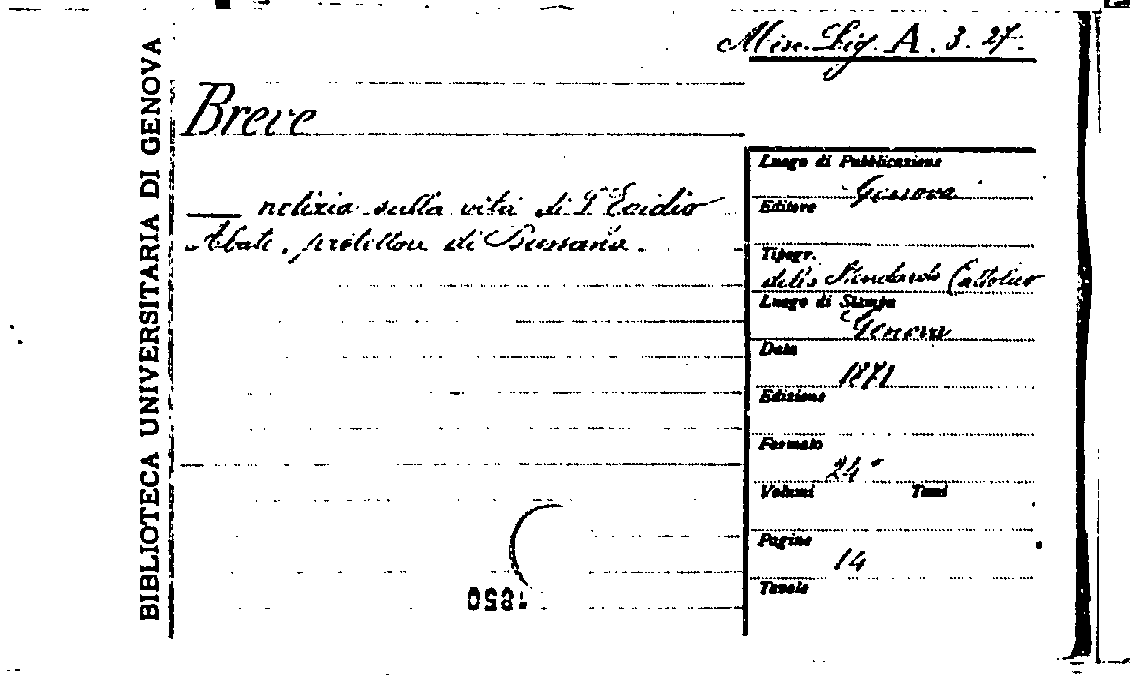 Misc. Lig. A. 3. 27.
BIBLIOTECA UNIVERSITARIA DI GENOVA
Breve
— notizia sulla vita di S. Egidio
Abate, protettore di Bussana.
Luogo di Pubblicazione
Genova
Editore
Tipogr.
dello Stendardo Cattolico
Luogo di Stampa
Genova
Data
1871
Edizione
Formato
24°
Volumi Tomi
Pagine
14
Tavole
1850